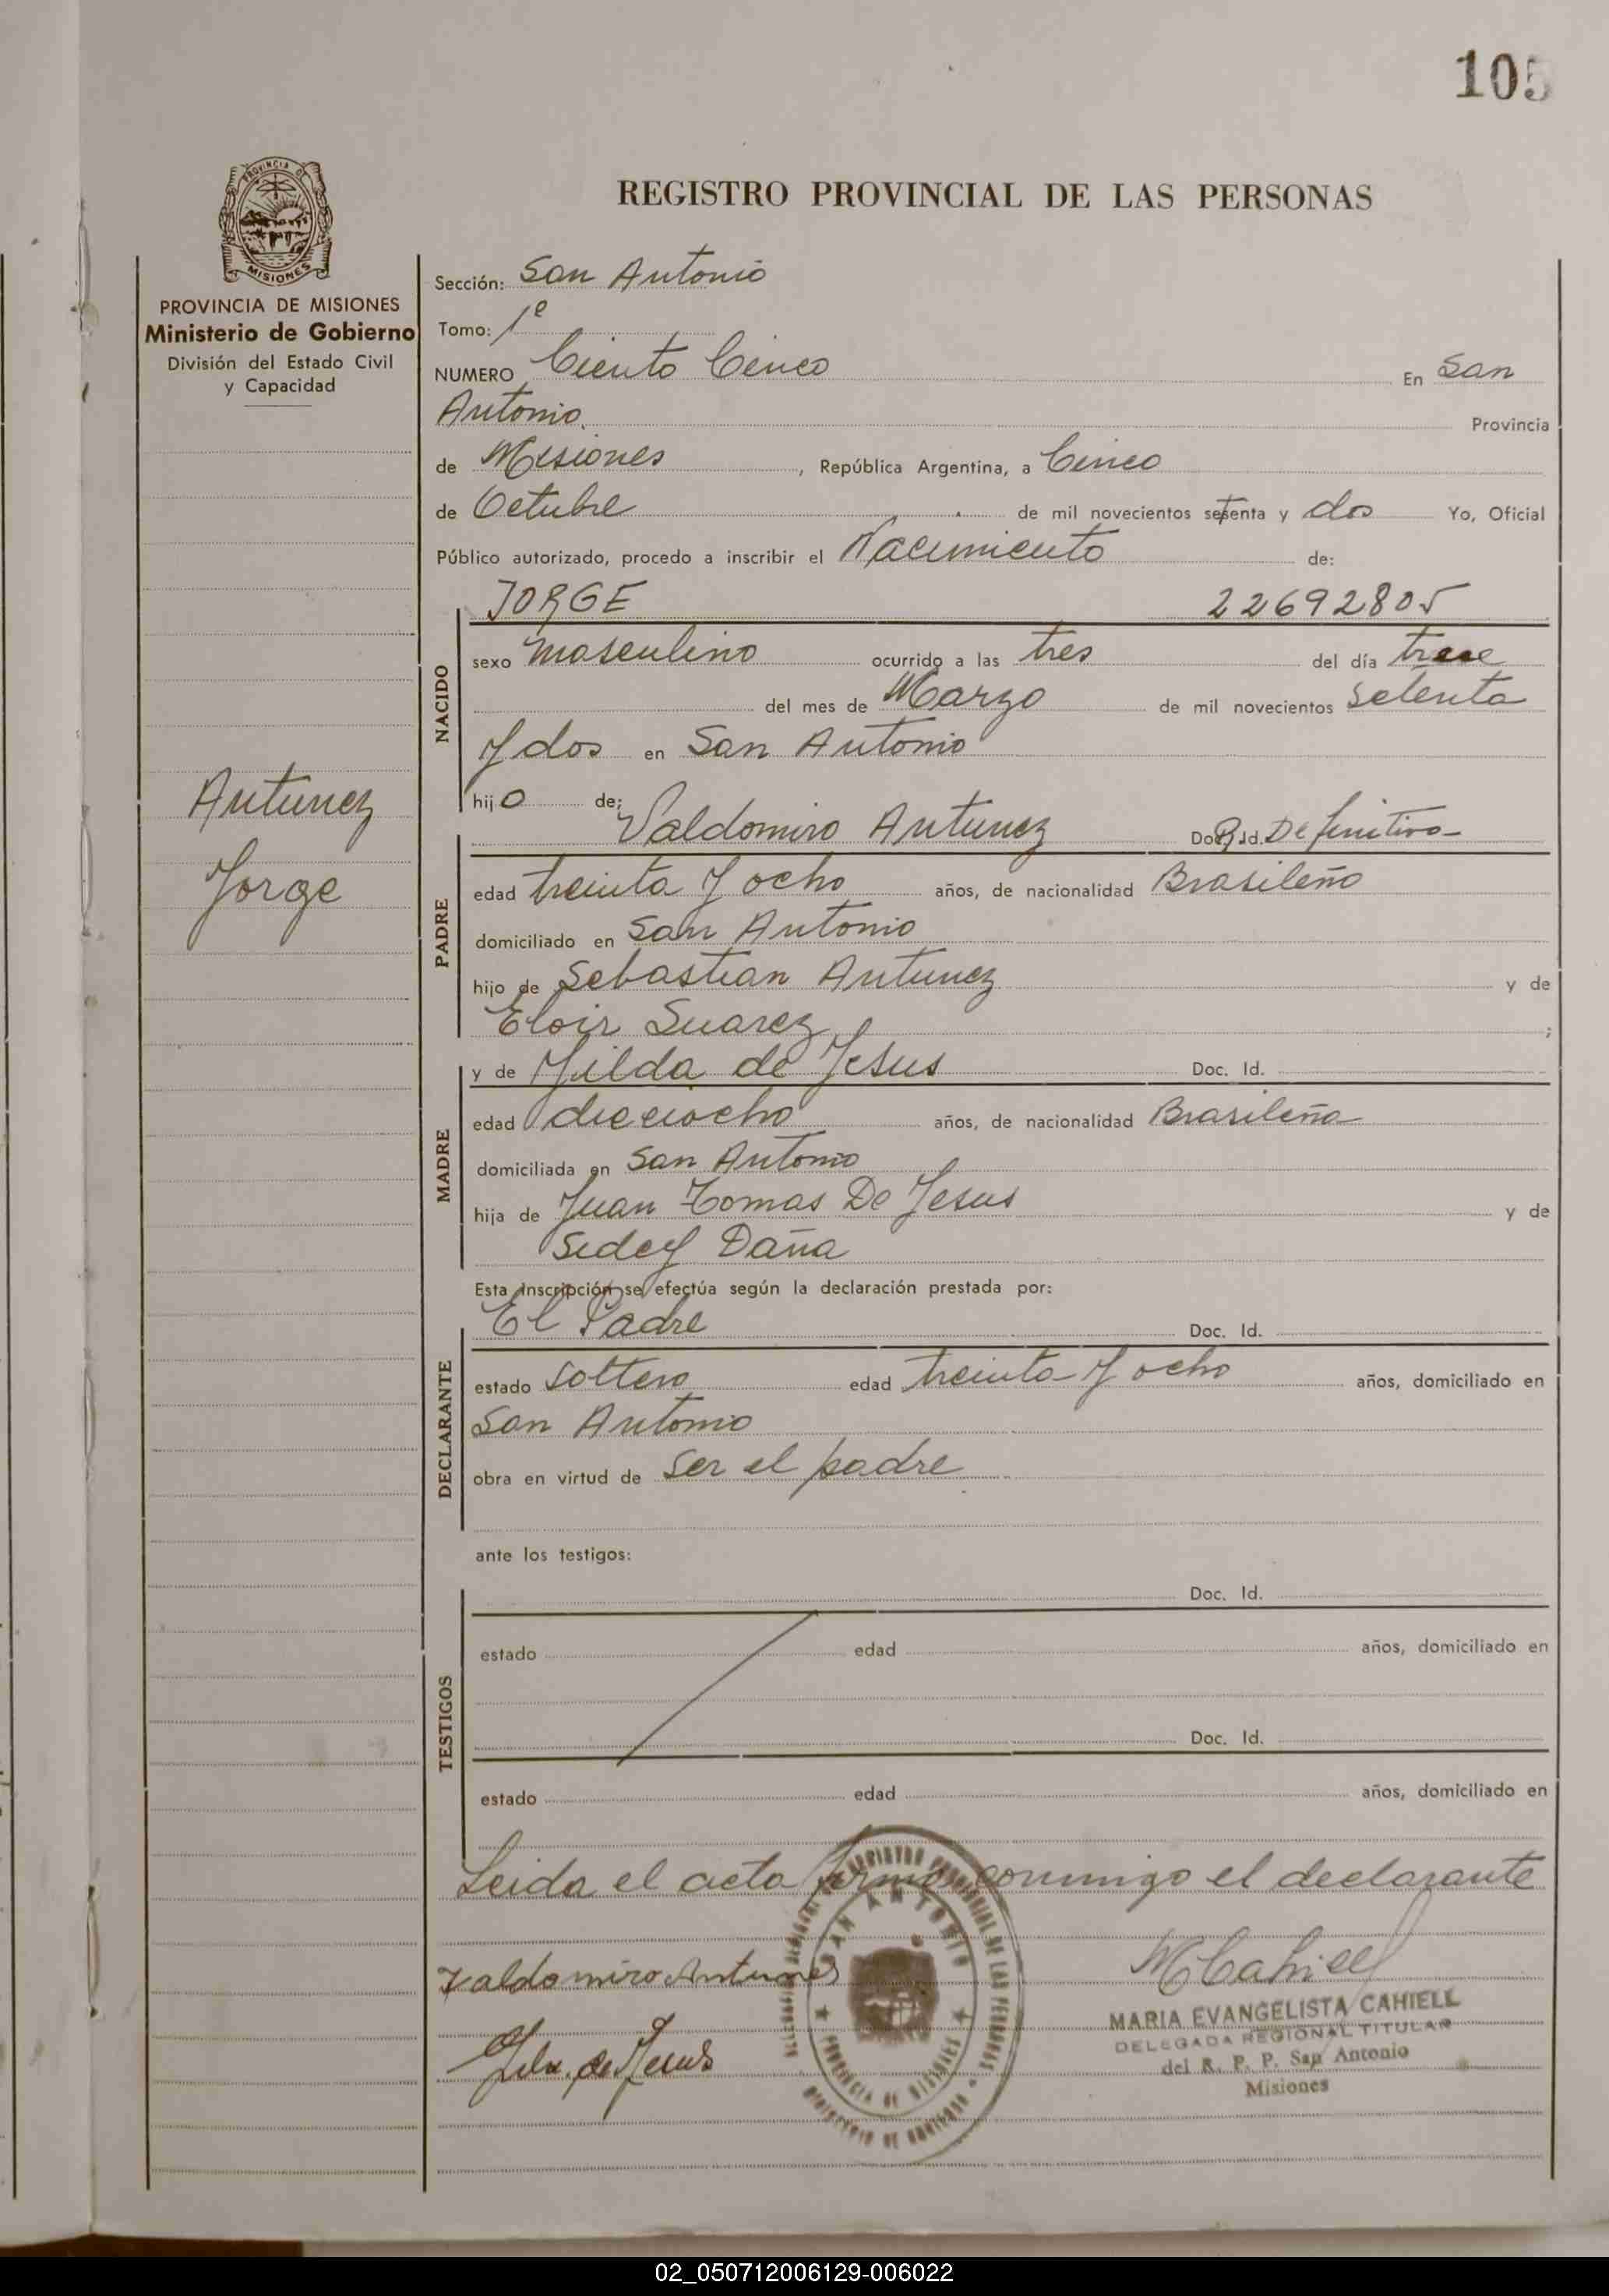 105
REGISTRO PROVINCIAL DE LAS PERSONAS
PROVINCIA DE
MISIONES
PROVINCIA DE MISIONES
Ministerio de Gobierno
División del Estado Civil
y Capacidad
Antunez
Jorge
Sección: San Antonio
Tomo: 1º
NUMERO Ciento Cinco En San
Antonio. Provincia
de Misiones, República Argentina, a Cinco
de Octubre de mil novecientos setenta y dos Yo, Oficial
Público autorizado, procedo a inscribir el Nacimiento de:
JORGE 22692805
NACIDO
sexo masculino ocurrido a las tres del día trece
del mes de Marzo de mil novecientos setenta
y dos en San Antonio
hijo de:
Valdomiro Antunez Doc. Id. Definitiva
PADRE
edad treinta y ocho años, de nacionalidad Brasileño
domiciliado en San Antonio
hijo de Sebastian Antunez y de
Eloir Suarez ;
y de Yilda de Jesus Doc. Id.
MADRE
edad dieciocho años, de nacionalidad Brasileña
domiciliada en San Antonio
hija de Juan Tomas De Jesus y de
Sidey Daña
Esta Inscripción se efectúa según la declaración prestada por:
El Padre Doc. Id.
DECLARANTE
estado Soltero edad treinta y ocho años, domiciliado en
San Antonio
obra en virtud de Ser el padre
ante los testigos:
Doc. Id.
TESTIGOS
estado edad años, domiciliado en
Doc. Id.
estado edad años, domiciliado en
Leida el acta firma conmigo el declarante
Valdomiro Antunes
de Jesus
SAN ANTONIO
PROVINCIA DE MISIONES
MINISTERIO DE GOBIERNO
MCahiell
MARIA EVANGELISTA CAHIELL
DELEGADA REGIONAL TITULAR
del R. P. P. San Antonio
Misiones
02_050712006129-006022